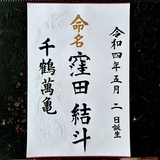 令和四年五月二日誕生
命名
窪田結斗
千鶴萬亀